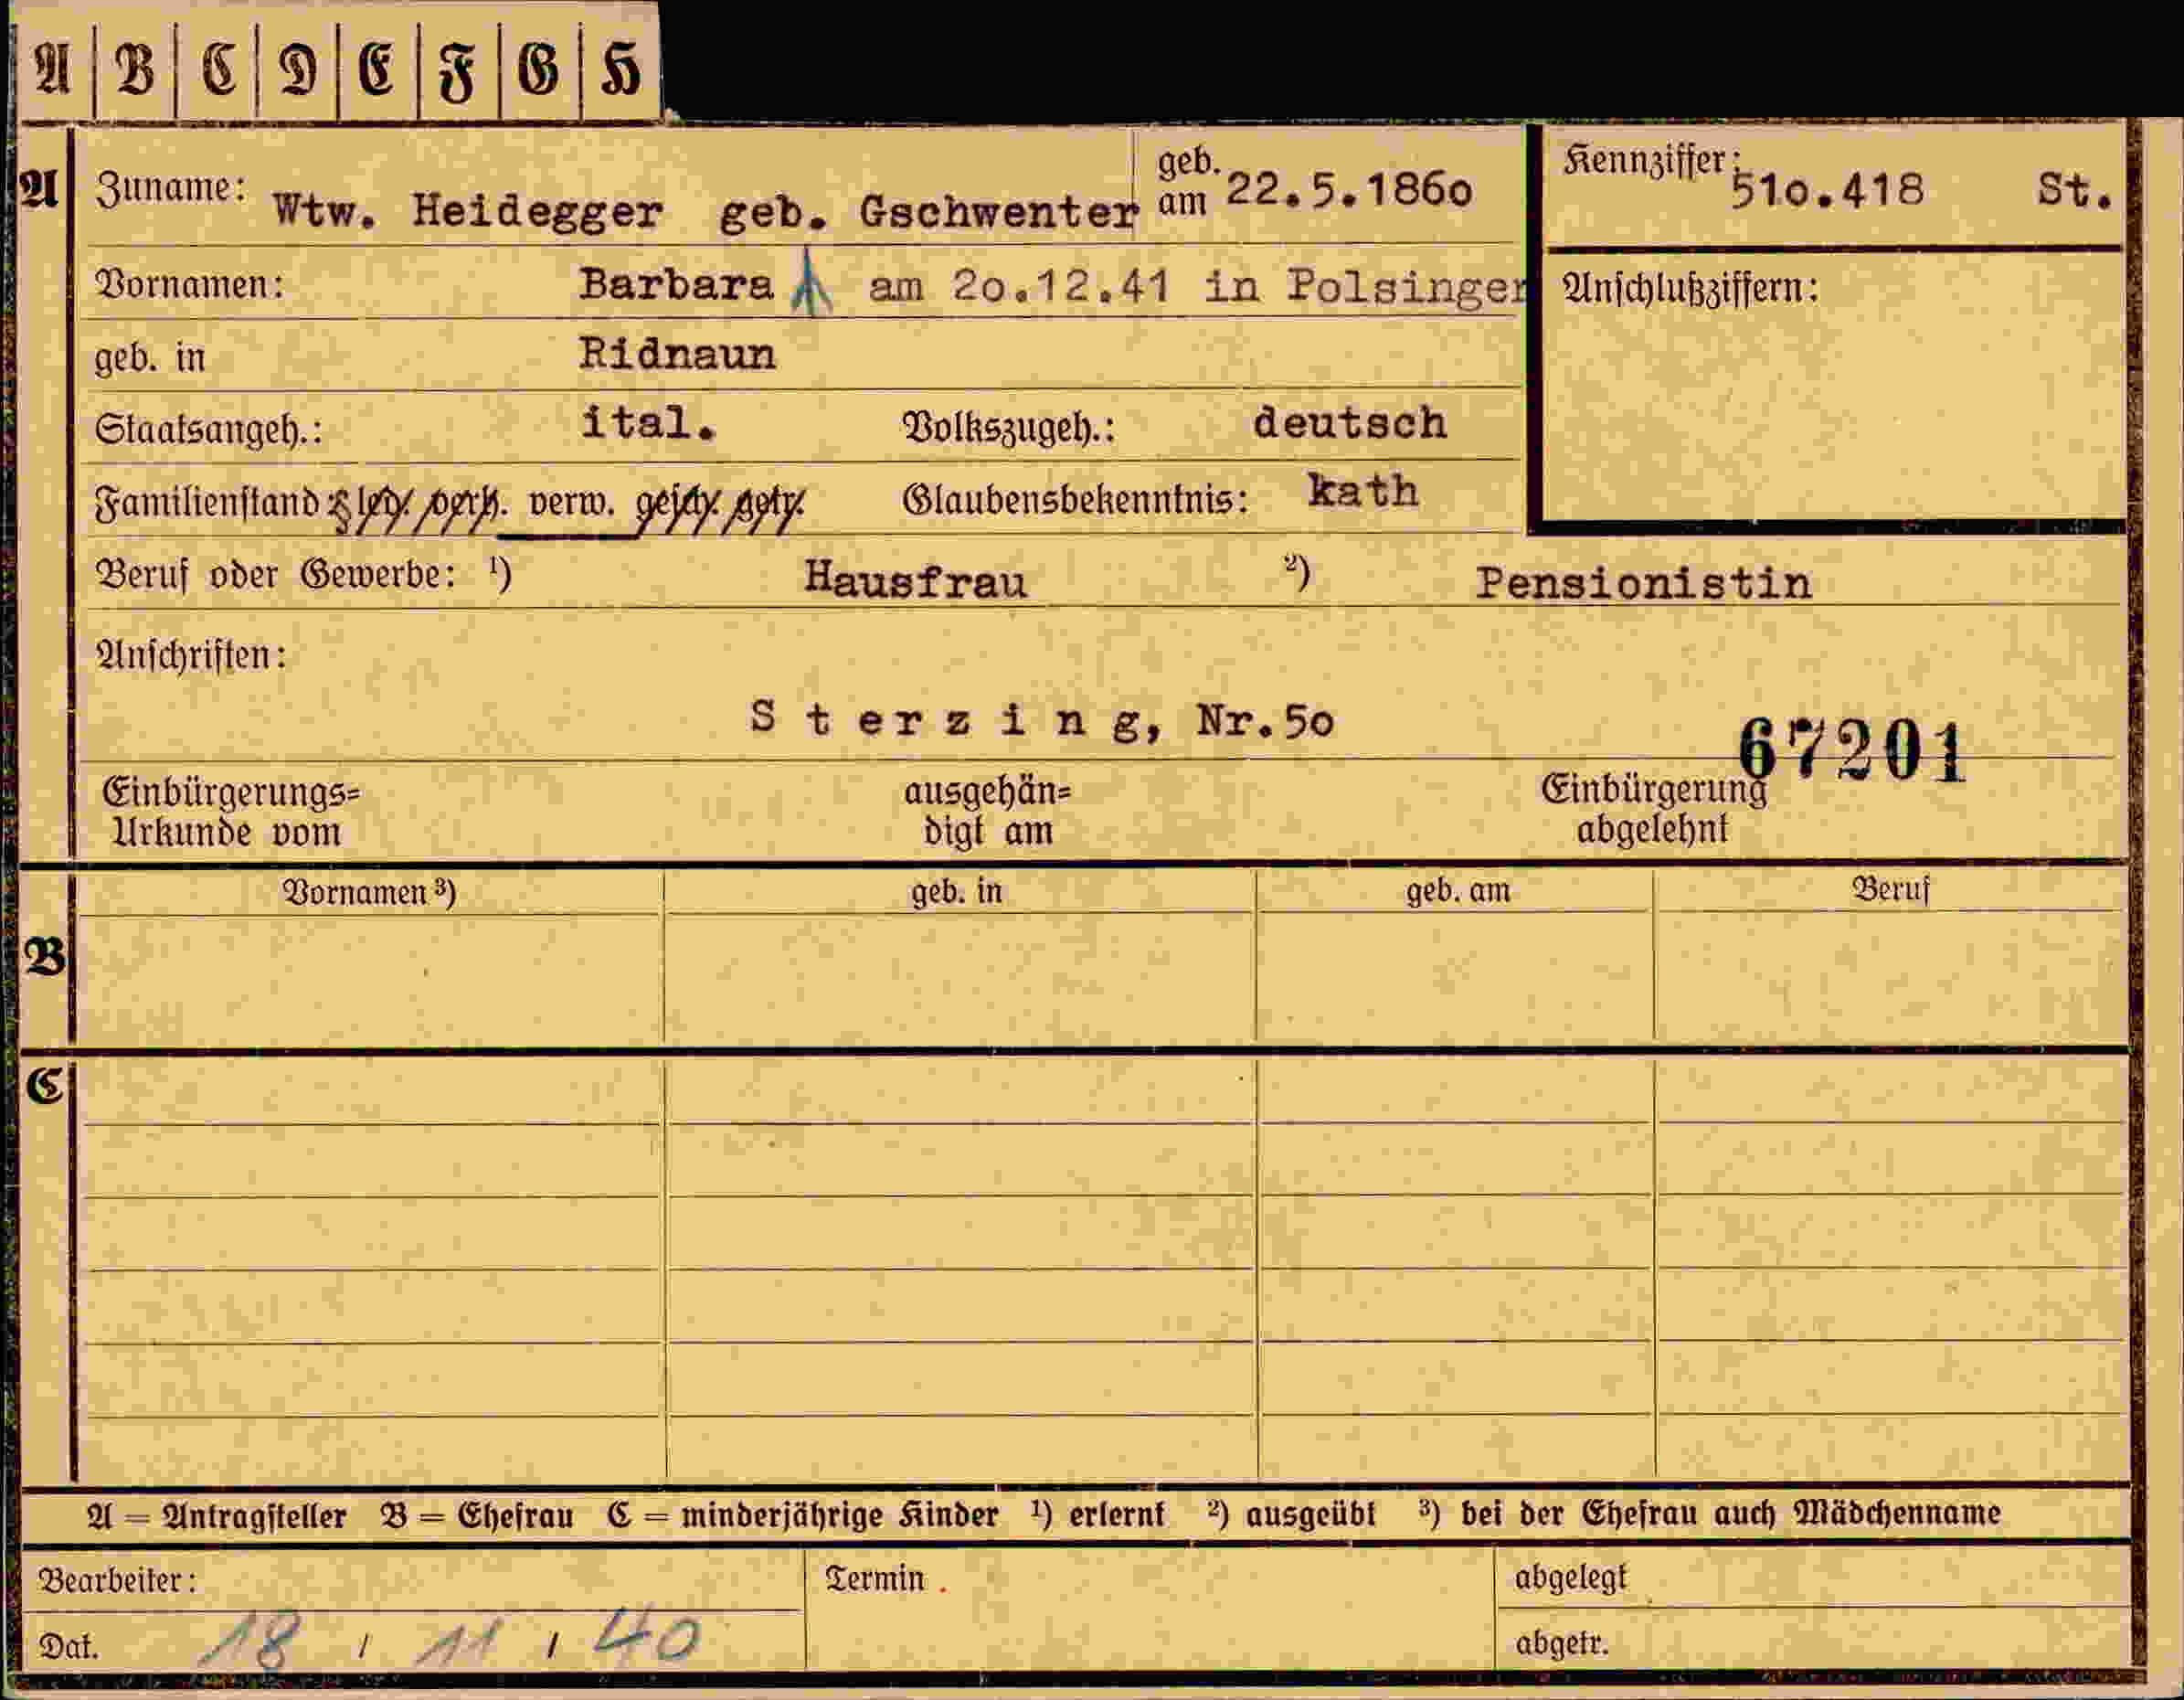 A B C D E F G H
A Zuname: Wtw. Heidegger geb. Gschwenter geb. am 22.5.1860
Kennziffer: 510.418 St.
Vornamen: Barbara am 20.12.41 in Polsinger
Anschlußziffern:
geb. in Ridnaun
Staatsangeh.: ital. Volkszugeh.: deutsch
Familienstand: led. verh. verw. gesch. getr. Glaubensbekenntnis: kath
Beruf oder Gewerbe: ¹) Hausfrau ²) Pensionistin
Anschriften:
Sterzing, Nr.50
67201
Einbürgerungs=
Urkunde vom
ausgehän=
digt am
Einbürgerung
abgelehnt
B Vornamen ³) geb. in geb. am Beruf
C
A = Antragsteller B = Ehefrau C = minderjährige Kinder ¹) erlernt ²) ausgeübt ³) bei der Ehefrau auch Mädchenname
Bearbeiter: Termin . abgelegt
Dat. 18 / 11 / 40 abgetr.